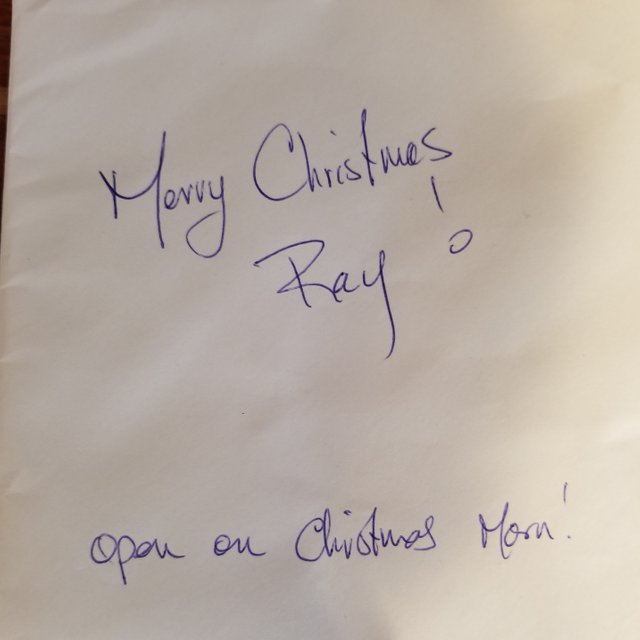 Merry Christmas
Ray!
Open on Christmas Morn!